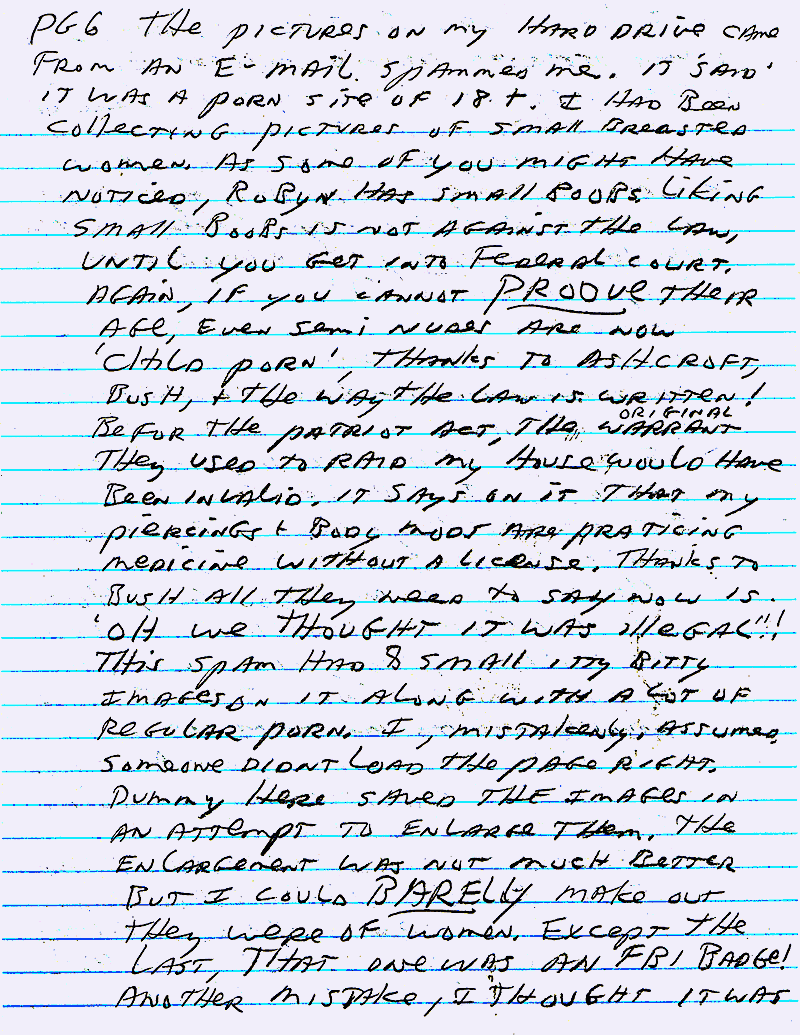 PG.6 THE PICTURES ON MY HARD DRIVE CAME
FROM AN E-MAIL SPAMMED ME. IT 'SAID'
IT WAS A PORN SITE OF 18+. I HAD BEEN
COLLECTING PICTURES OF SMALL BREASTED
WOMEN. AS SOME OF YOU MIGHT HAVE
NOTICED, ROBYN HAS SMALL BOOBS. LIKING
SMALL BOOBS IS NOT AGAINST THE LAW,
UNTIL YOU GET INTO FEDERAL COURT.
AGAIN, IF YOU CANNOT PROOVE THEIR
AGE, EVEN SEMI NUDES ARE NOW
'CHILD PORN', THANKS TO ASHCROFT,
BUSH, + THE WAY THE LAW IS WRITTEN!
BEFOR THE PATRIOT ACT, THE ORIGINAL WARRANT
THEY USED TO RAID MY HOUSE WOULD HAVE
BEEN INVALID. IT SAYS ON IT THAT MY
PIERCINGS + BODY MODS ARE PRATICING
MEDICINE WITHOUT A LICENSE. THANKS TO
BUSH ALL THEY NEED TO SAY NOW IS.
'OH WE THOUGHT IT WAS ILLEGAL'!!
THIS SPAM HAD 8 SMALL ITTY BITTY
IMAGES ON IT ALONG WITH A LOT OF
REGULAR PORN. I, MISTAKENLY, ASSUMED,
SOMEONE DIDNT LOAD THE PAGE RIGHT.
DUMMY HERE SAVED THE IMAGES IN
AN ATTEMPT TO ENLARGE THEM. THE
ENLARGEMENT WAS NOT MUCH BETTER
BUT I COULD BARELY MAKE OUT
THEY WERE OF WOMEN. EXCEPT THE
LAST, THAT ONE WAS AN FBI BADGE!
ANOTHER MISTAKE, I THOUGHT IT WAS